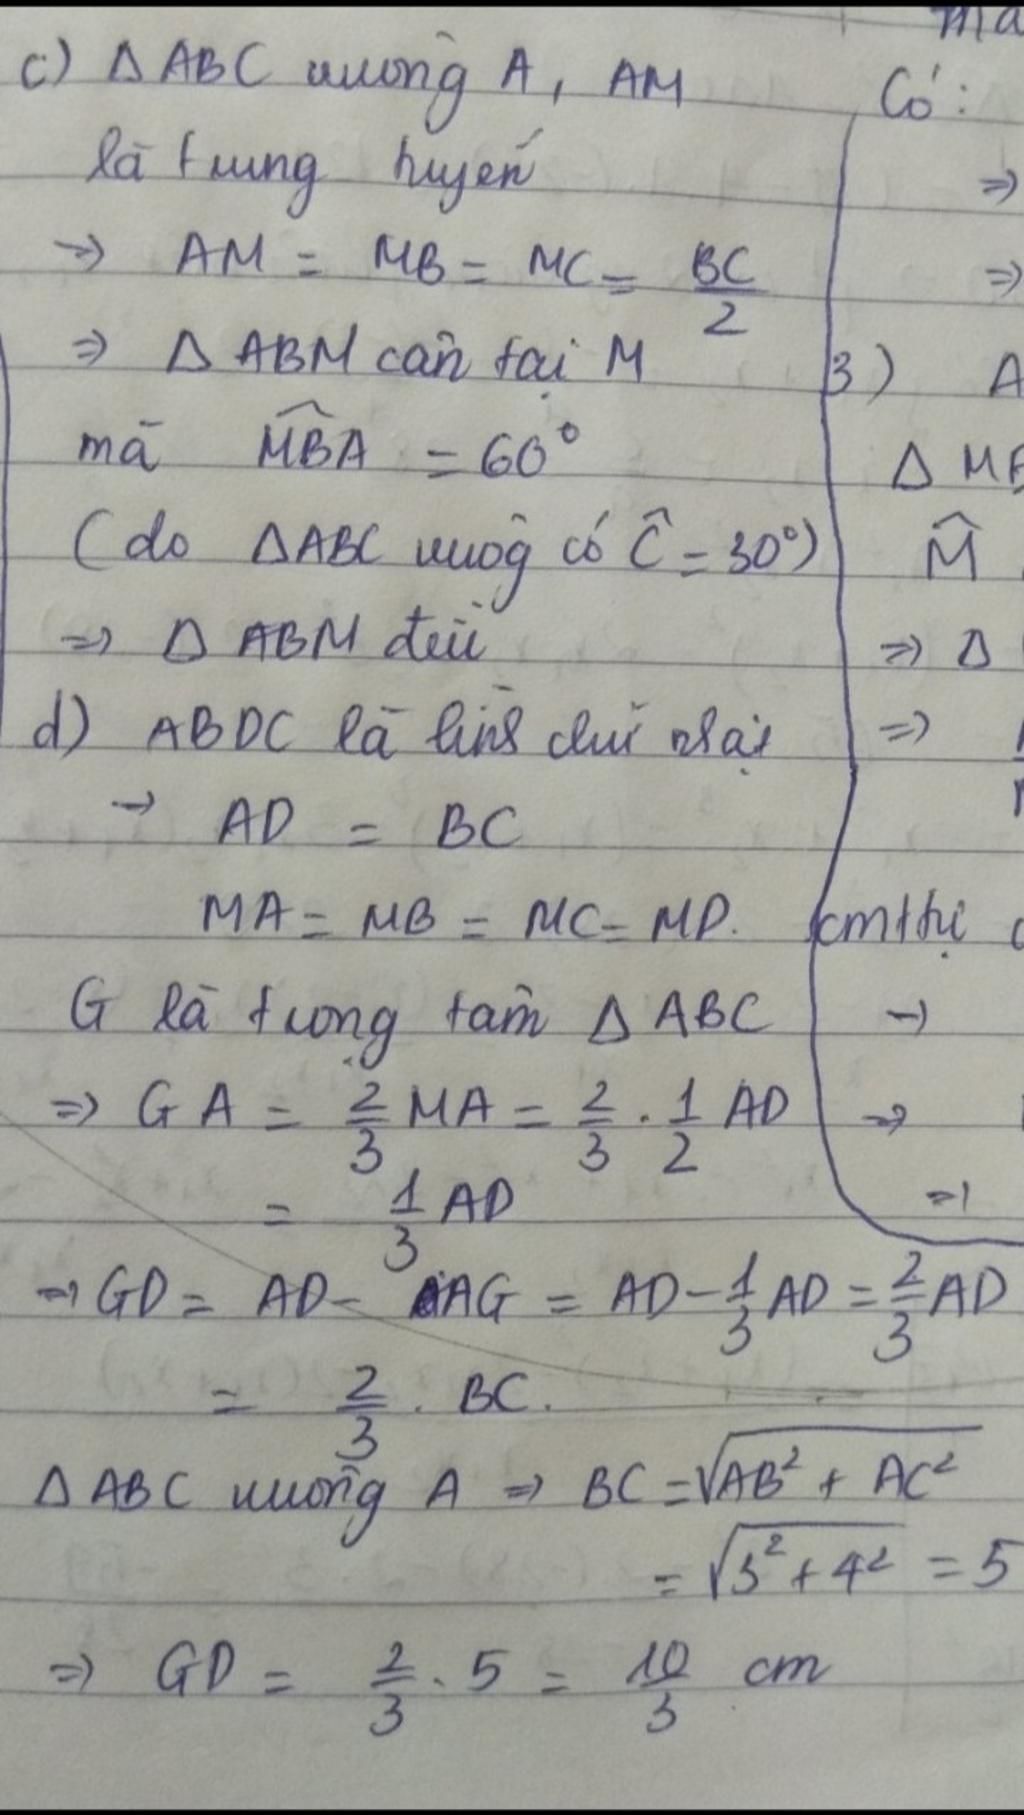 c) Δ ABC vuông A, AM
là trung tuyến
=> AM = MB = MC = BC/2
=> Δ ABM cân tại M
mà MBA^ = 60°
(do ΔABC vuôg có Ĉ = 30°)
=> Δ ABM đều
d) ABDC là hình chữ nhật
→ AD = BC
MA = MB = MC = MD.
G là trọng tâm Δ ABC
=> GA = 2/3 MA = 2/3 . 1/2 AD
= 1/3 AD
=> GD = AD - AG = AD - 1/3 AD = 2/3 AD
= 2/3 . BC.
Δ ABC vuông A => BC = √(AB² + AC²)
= √(3² + 4²) = 5
=> GD = 2/3 . 5 = 10/3 cm
Có:
=>
=>
3) A
Δ MB
M̂
=> Δ
=>
cmtht
→
=>
=>